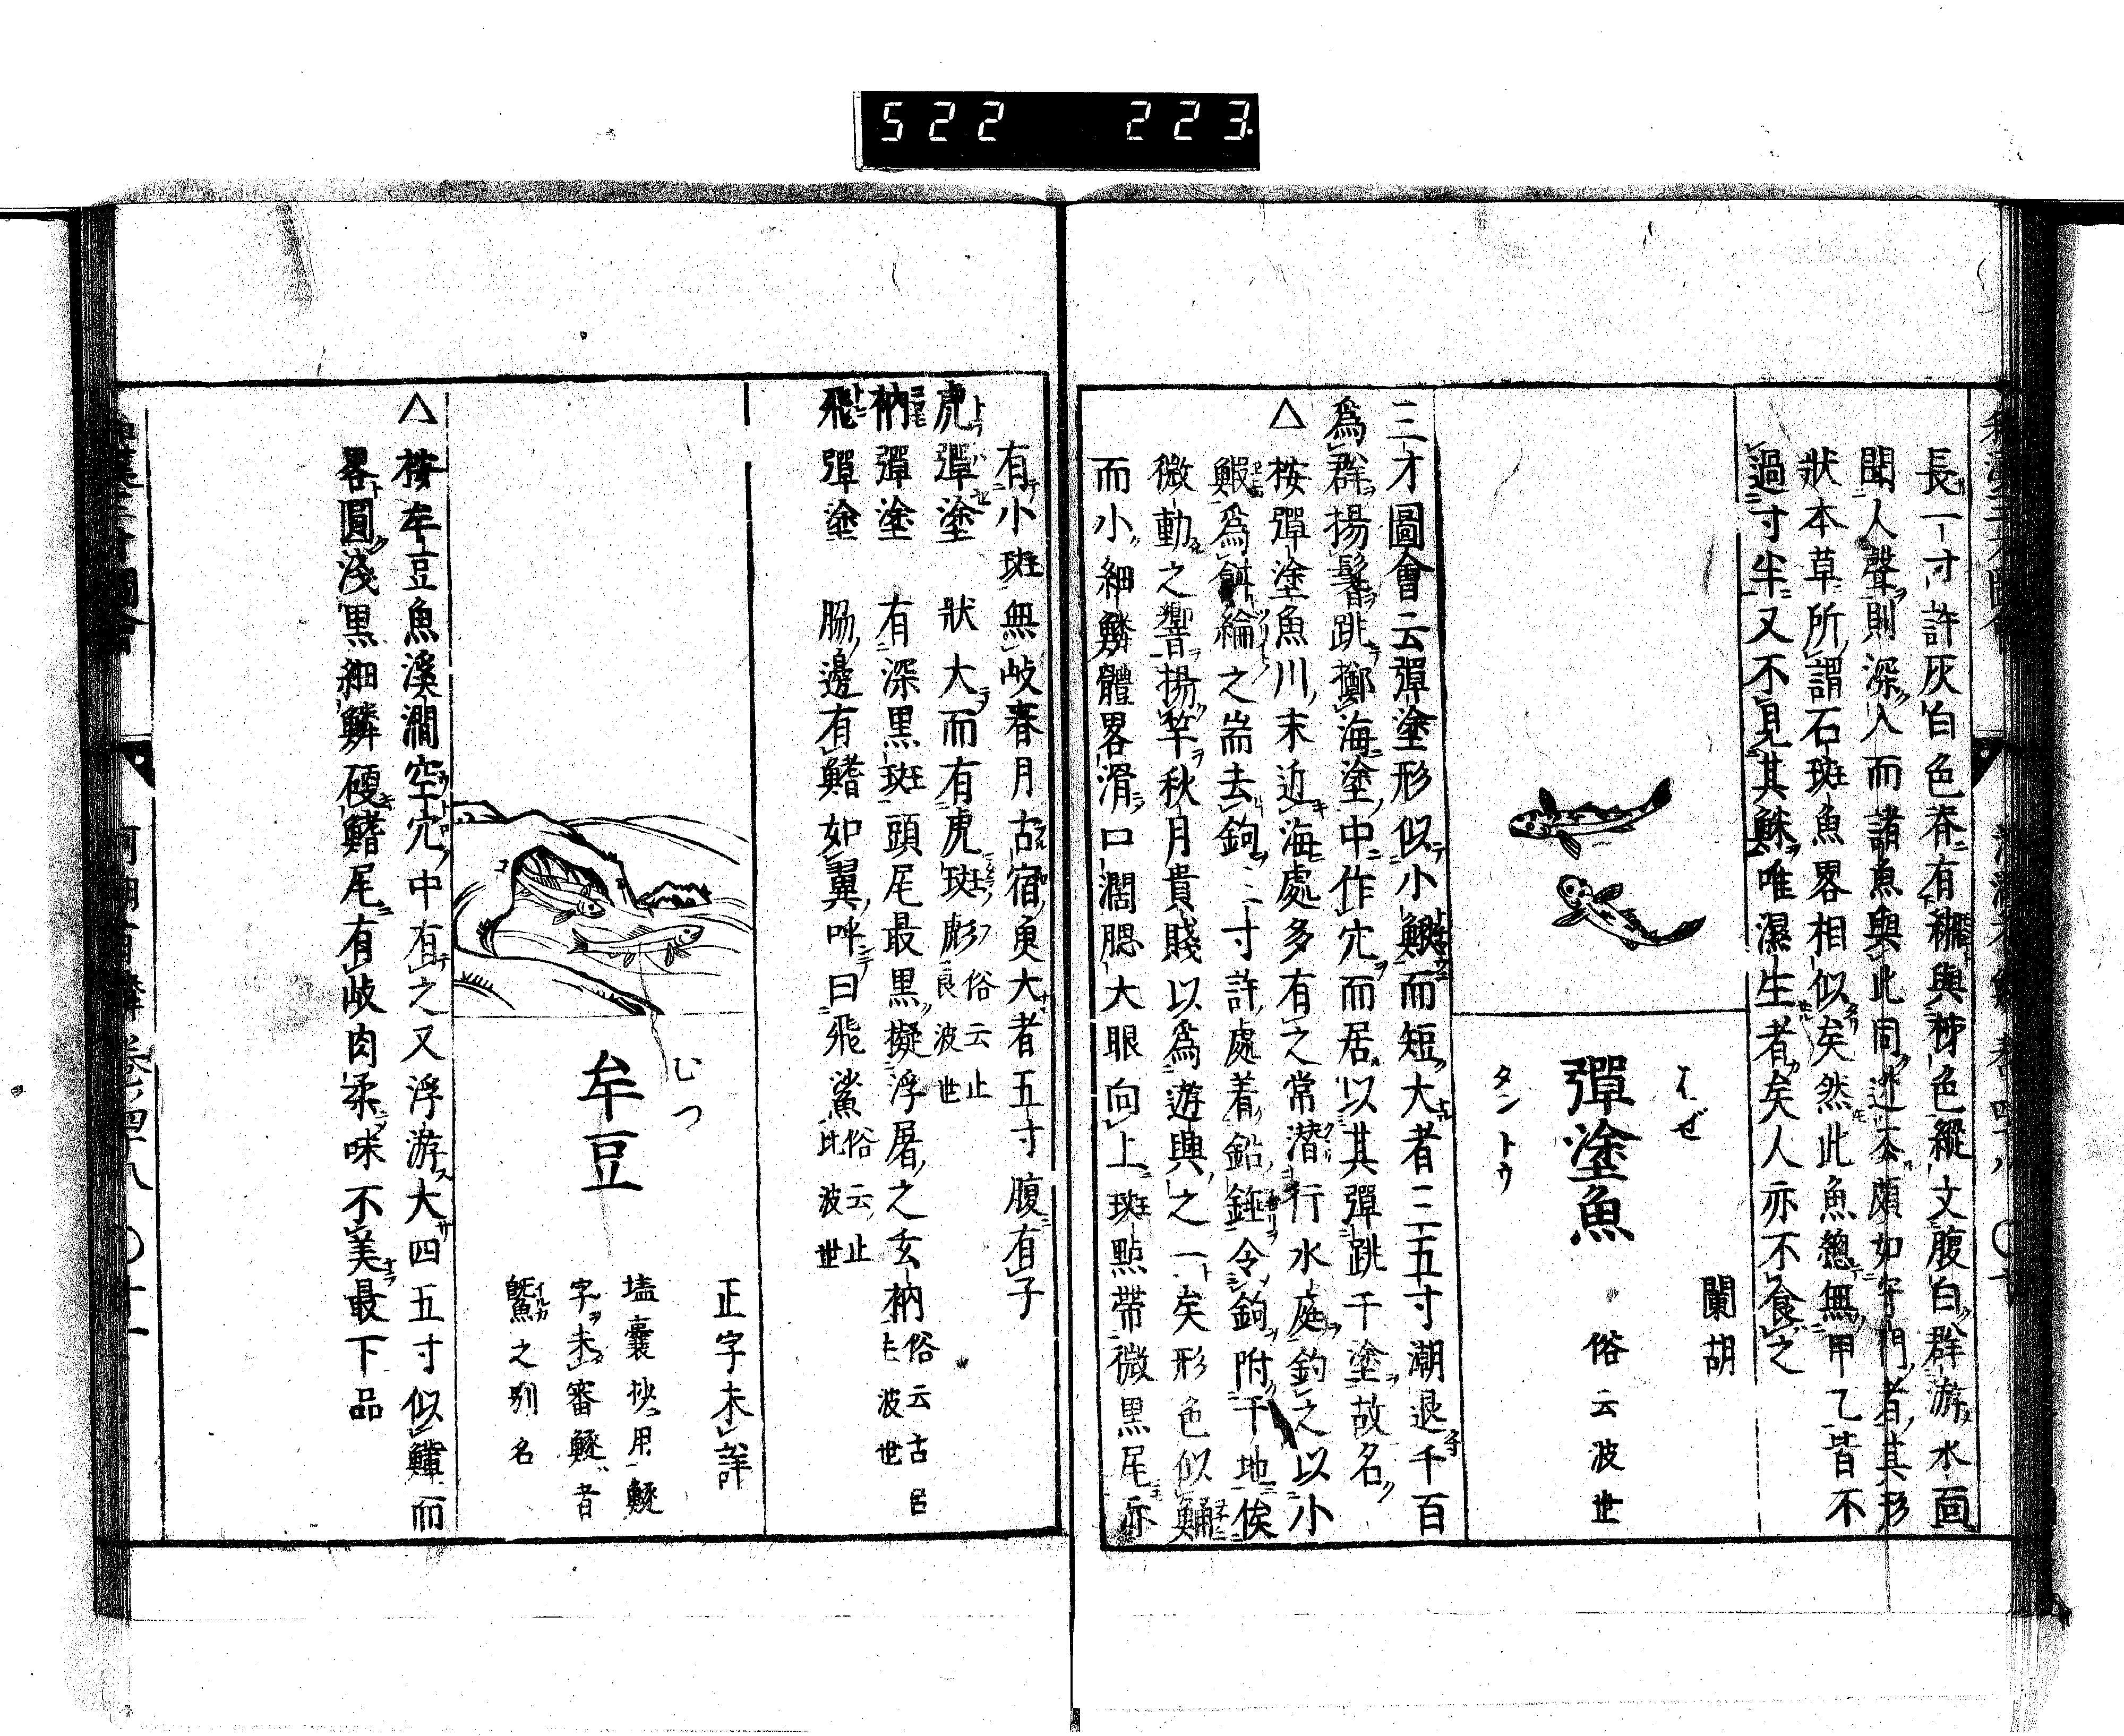 522 223
長一寸許灰白色脊有𮕩與柹色縱文腹白群游水面
聞人聲則深入而諸魚與此同迯不頗如守門者其形
狀本草所謂石斑魚畧相似矣然此魚總無甲乙皆不
過寸半又不見其鮴唯濕生者矣人亦不食之
闌胡
はぜ
彈塗魚
俗云波世
タントウ
三才圖會云彈塗形似小鰍而短大者三五寸潮退千百
爲群揚鬐跳擲海塗中作穴而居以其彈跳于塗故名
△按彈塗魚川末近海處多有之常潜行水底釣之以小
鰕爲餌綸之耑去鉤二寸許處着鉛錘令鉤附于地俟
微動之響揚竿秋月貴賤以爲遊興之一矣形色似鯒
而小細鱗體畧滑口濶腮大眼向上斑㸃帶微黒尾亦
有小斑無岐春月古宿更大者五寸腹有子
虎彈塗 狀大而有虎斑彪 俗云止良波世
衲彈塗 有深黒斑頭尾最黒擬浮屠之玄衲 俗云古呂毛波世
飛彈塗 脇邊有鰭如翼呼曰飛鯊 俗云止比波世
むつ
牟豆
正字未詳
壒囊抄用鱁
字未審鱁者
鱀之别名
△按牟豆魚溪澗空穴中有之又浮游大四五寸似鱓而
畧圓淺黒細鱗硬鰭尾有岐肉柔味不美最下品
河湖有鱗 卷四十八 〇十一